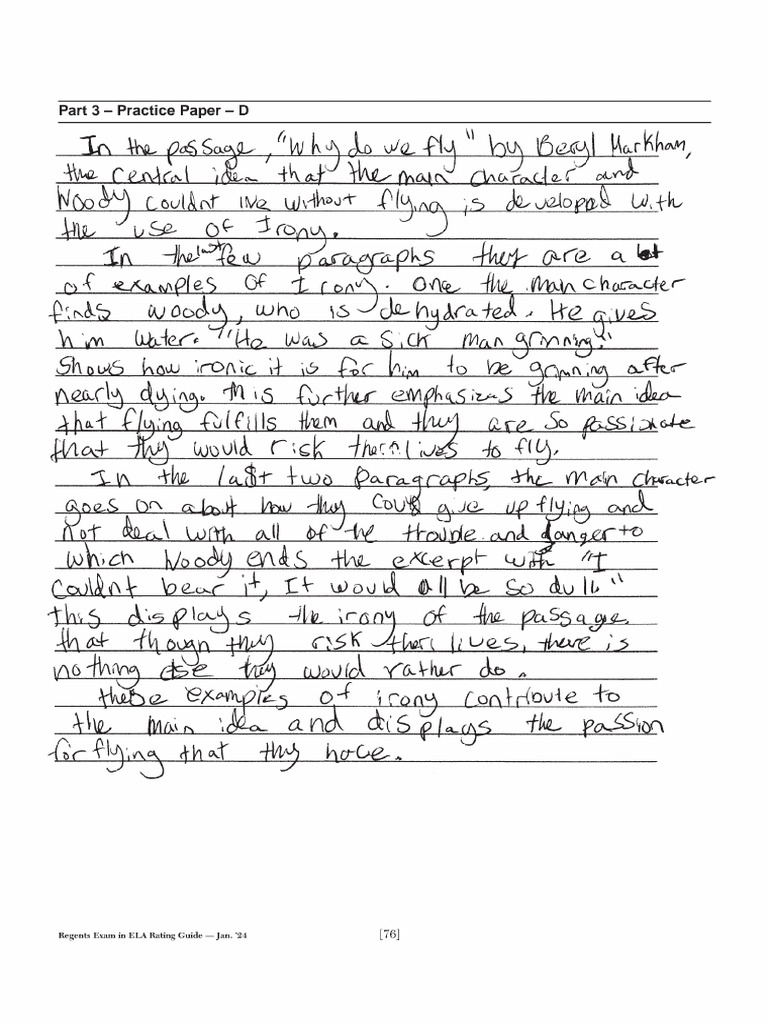 Part 3 – Practice Paper – D
In the passage, "Why do we fly" by Beryl Markham,
the central idea that the main character and
Woody couldnt live without flying is developed with
the use of Irony.
In the last few paragraphs they are a lot
of examples of Irony. One the main character
finds woody, who is dehydrated. He gives
him water. "He was a sick man grinning."
Shows how ironic it is for him to be grinning after
nearly dying. This further emphasizes the main idea
that flying fulfills them and they are so passionate
that thy would risk there lives to fly.
In the last two paragraphs, the main character
goes on about how thy could give up flying and
not deal with all of the trouble and danger to
which Woody ends the excerpt with "I
couldnt bear it, It would all be so dull."
this displays the irony of the passage.
that though they risk their lives, there is
nothing else they would rather do.
these examples of irony contribute to
the main idea and displays the passion
for flying that thy have.
Regents Exam in ELA Rating Guide — Jan. '24
[76]